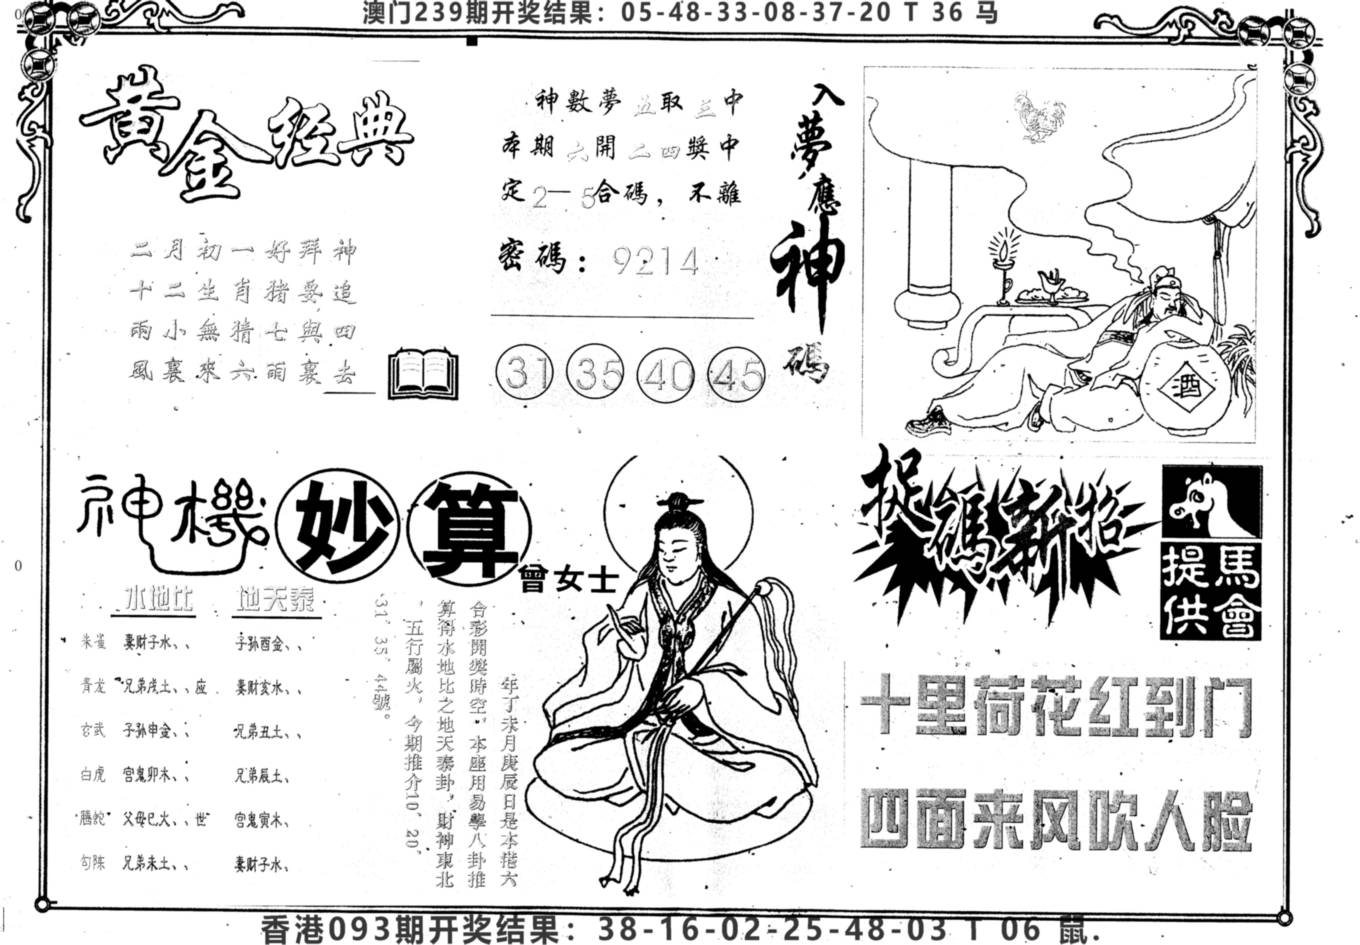 澳门239期开奖结果：05-48-33-08-37-20 T 36 马
黄金经典
二月初一好拜神
十二生肖猪要追
兩小無猜七與四
風裏來六雨裏去
神數夢五取三中
本期六開二四獎中
定2—5合碼，不離
密碼：9214
31 35 40 45
入夢應神碼
酒
神機妙算
曾女士
水地比 地天泰
朱雀 妻财子水、、 子孙酉金、、
青龙 兄弟戌土、、应 妻财亥水、、
玄武 子孙申金、、 兄弟丑土、、
白虎 官鬼卯木、、 兄弟辰土、
螣蛇 父母巳火、、世 官鬼寅木、
勾陈 兄弟未土、、 妻财子水、
年丁未月庚辰日是本港六
合彩開獎時空。本座用易學八卦推
算得水地比之地天泰卦，財神東北
，五行屬火，今期推介10、20、
31、35、44號。
捉碼新招
馬會提供
十里荷花红到门
四面来风吹人脸
香港093期开奖结果：38-16-02-25-48-03 T 06 鼠.